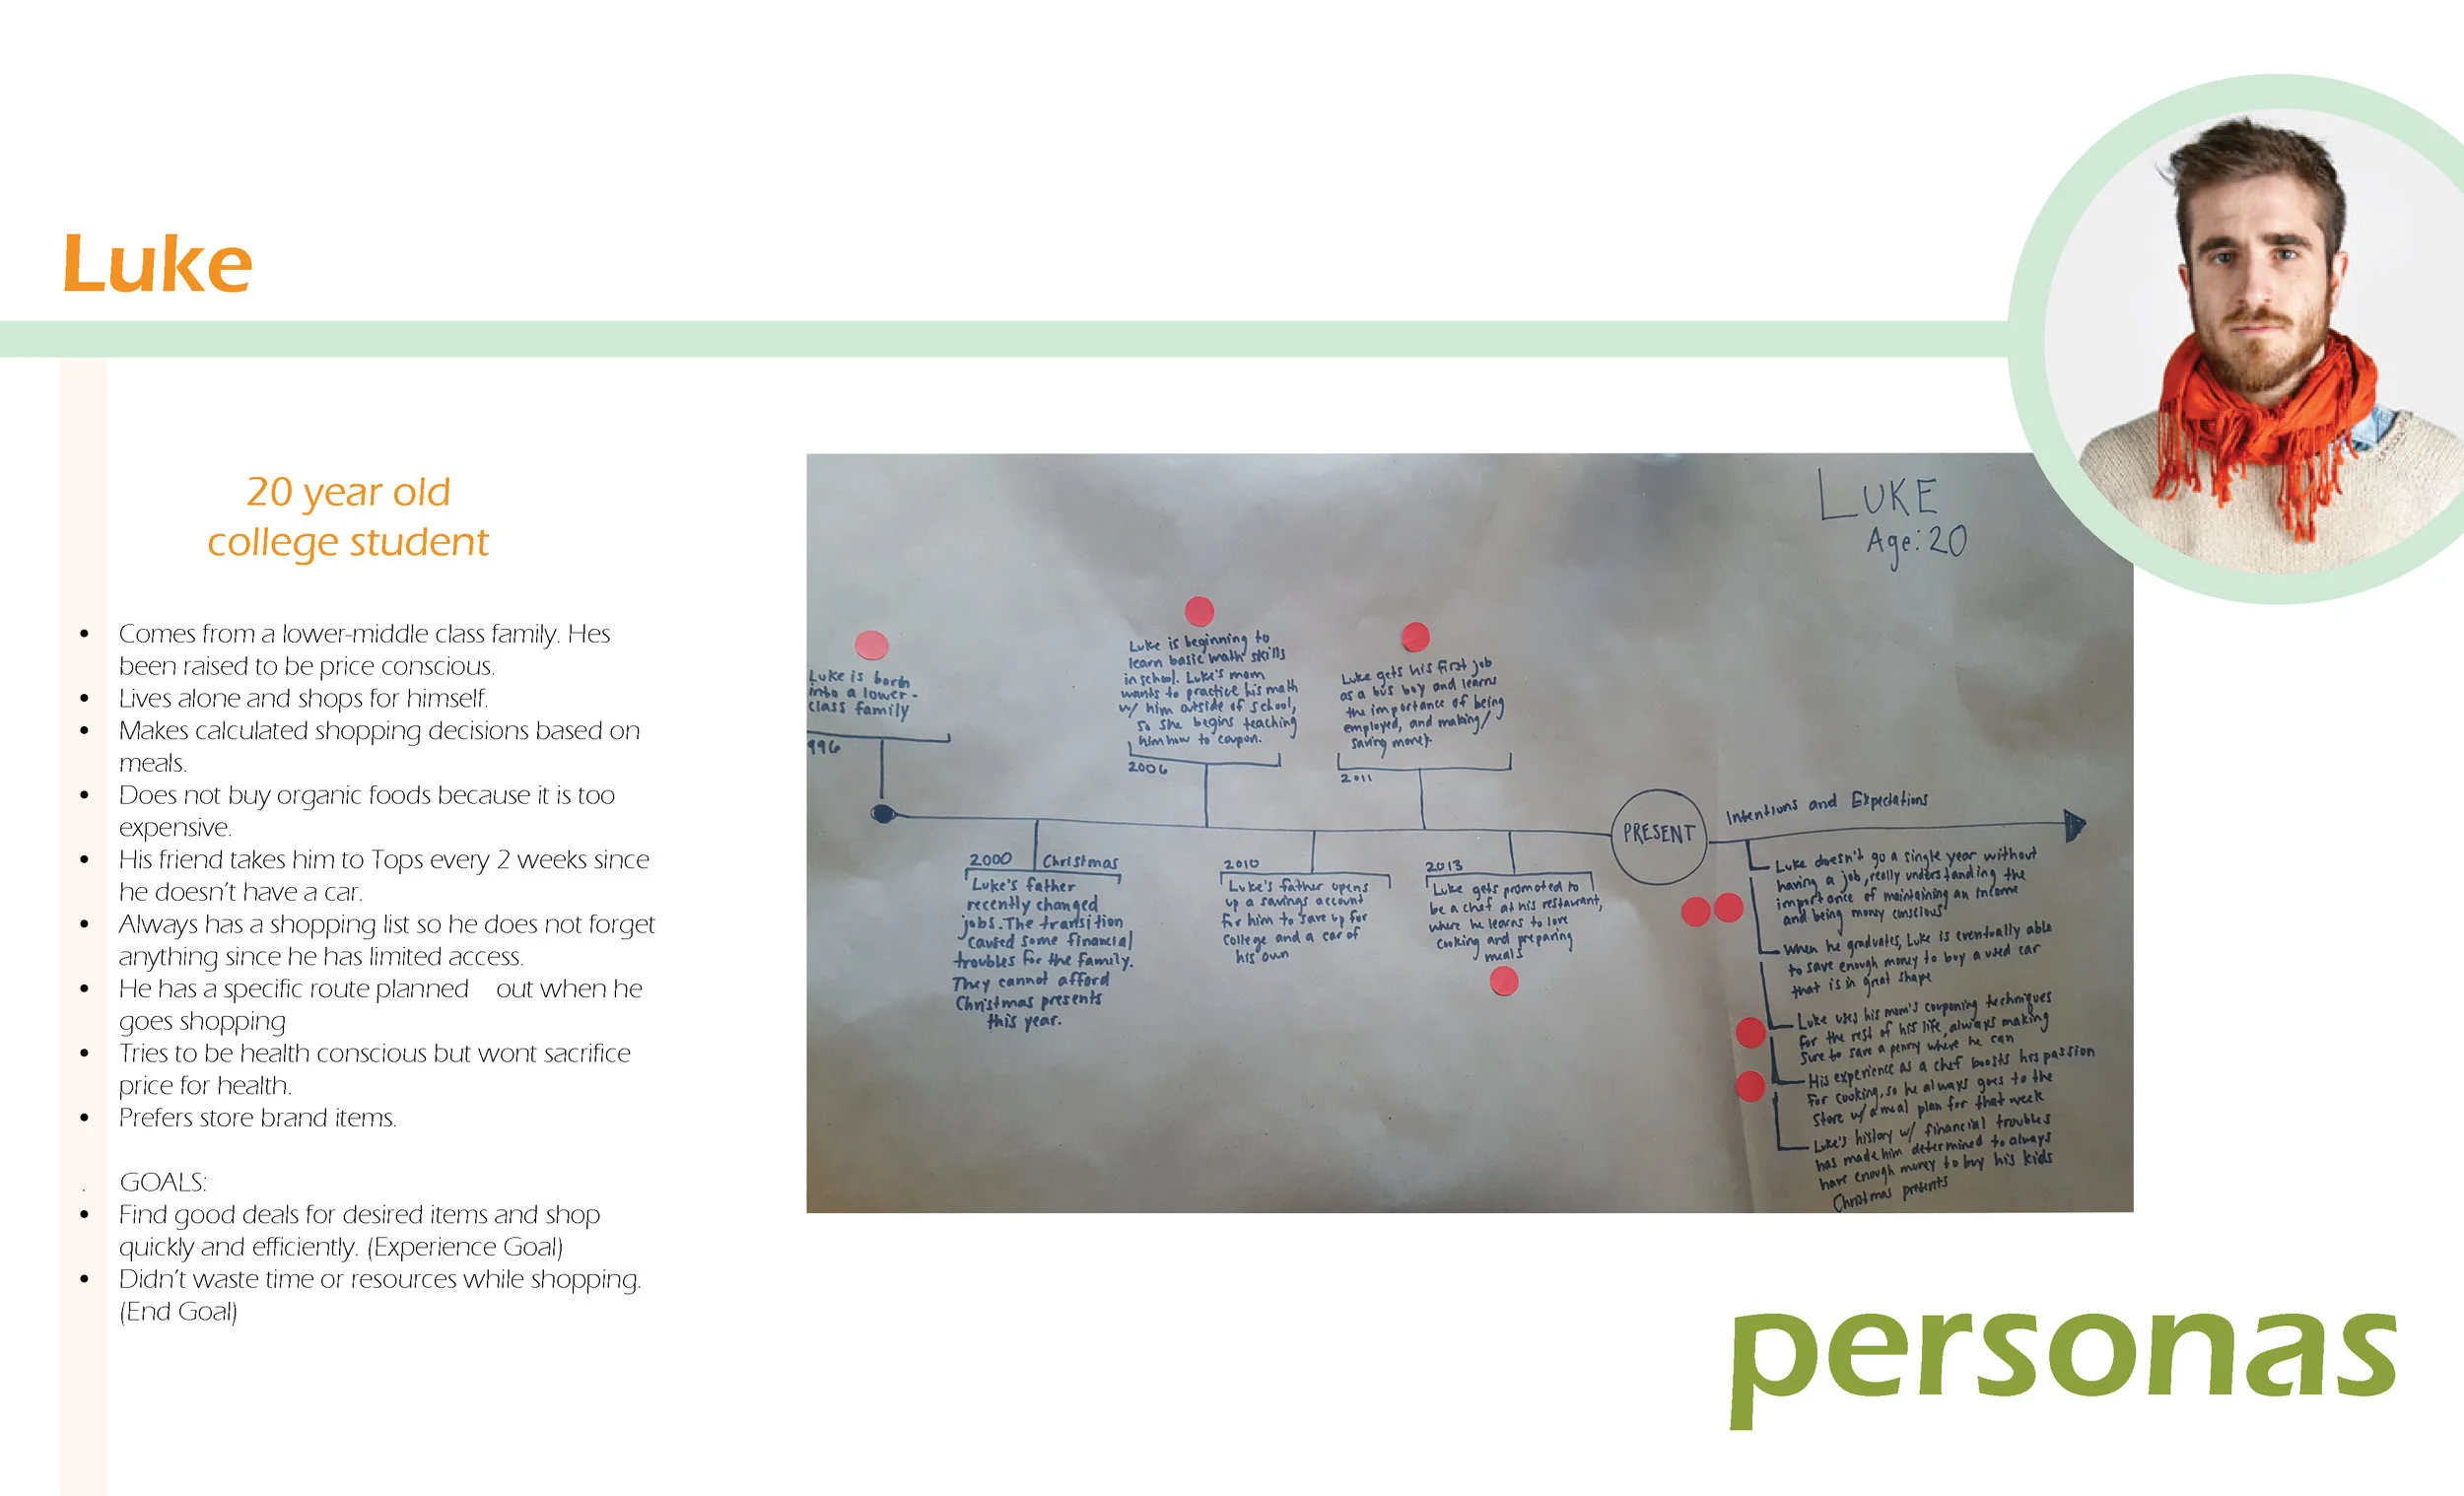 Luke
20 year old
college student
• Comes from a lower-middle class family. Hes
been raised to be price conscious.
• Lives alone and shops for himself.
• Makes calculated shopping decisions based on
meals.
• Does not buy organic foods because it is too
expensive.
• His friend takes him to Tops every 2 weeks since
he doesn't have a car.
• Always has a shopping list so he does not forget
anything since he has limited access.
• He has a specific route planned out when he
goes shopping
• Tries to be health conscious but wont sacrifice
price for health.
• Prefers store brand items.
. GOALS:
• Find good deals for desired items and shop
quickly and efficiently. (Experience Goal)
• Didn't waste time or resources while shopping.
(End Goal)
LUKE
Age: 20
Luke is born
into a lower-
class family
996
2000 Christmas
Luke's father
recently changed
jobs. The transition
caused some financial
troubles for the family.
They cannot afford
Christmas presents
this year.
Luke is beginning to
learn basic math skills
in school. Luke's mom
wants to practice his math
w/ him outside of school,
so she begins teaching
him how to coupon.
2006
2010
Luke's father opens
up a savings account
for him to save up for
college and a car of
his own
Luke gets his first job
as a bus boy and learns
the importance of being
employed, and making/
saving money.
2011
2013
Luke gets promoted to
be a chef at his restaurant,
where he learns to love
cooking and preparing
meals
PRESENT
Intentions and Expectations
Luke doesn't go a single year without
having a job, really understanding the
importance of maintaining an income
and being money conscious
When he graduates, Luke is eventually able
to save enough money to buy a used car
that is in great shape
Luke uses his mom's couponing techniques
for the rest of his life, always making
sure to save a penny where he can
His experience as a chef boosts his passion
for cooking, so he always goes to the
store w/ a meal plan for that week
Luke's history w/ financial troubles
has made him determined to always
have enough money to buy his kids
Christmas presents
personas